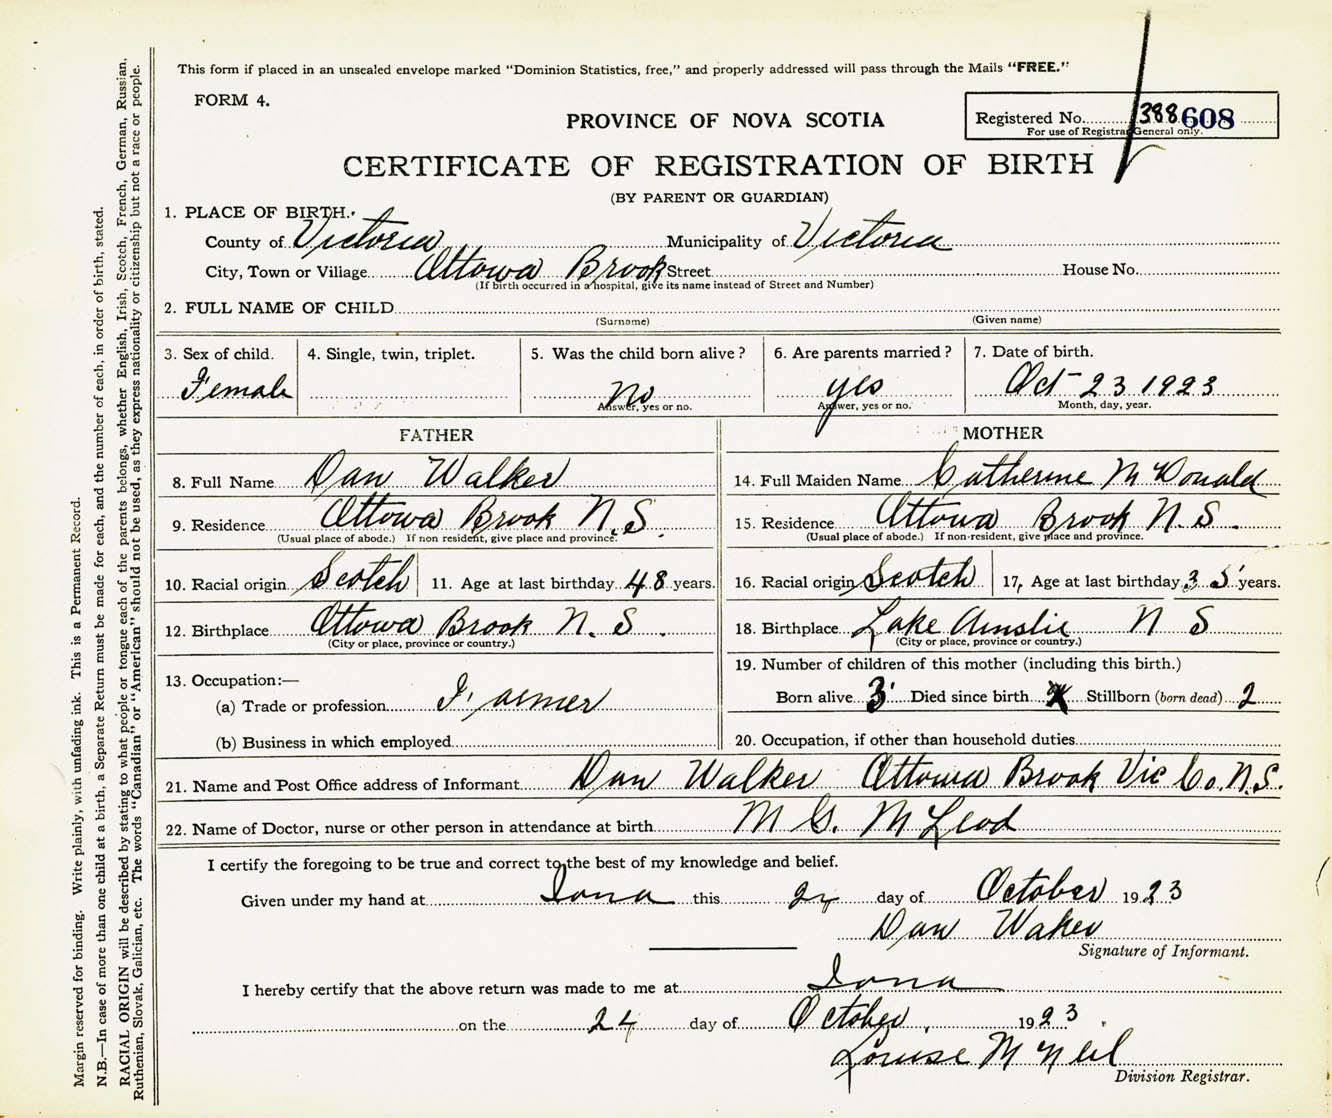 This form if placed in an unsealed envelope marked "Dominion Statistics, free," and properly addressed will pass through the Mails "FREE."
FORM 4.
PROVINCE OF NOVA SCOTIA
Registered No. 388608
For use of Registrar General only.
CERTIFICATE OF REGISTRATION OF BIRTH
(BY PARENT OR GUARDIAN)
1. PLACE OF BIRTH.
County of Victoria Municipality of Victoria
City, Town or Village Ottowa Brook Street House No.
(If birth occurred in a hospital, give its name instead of Street and Number)
2. FULL NAME OF CHILD
(Surname) (Given name)
3. Sex of child. 4. Single, twin, triplet. 5. Was the child born alive? 6. Are parents married? 7. Date of birth.
Female No yes Oct 23 1923
Answer, yes or no. Answer, yes or no. Month, day, year.
FATHER MOTHER
8. Full Name Dan Walker 14. Full Maiden Name Catherine McDonald
9. Residence Ottowa Brook N.S. 15. Residence Ottowa Brook N.S.
(Usual place of abode.) If non resident, give place and province. (Usual place of abode.) If non-resident, give place and province.
10. Racial origin Scotch 11. Age at last birthday 48 years. 16. Racial origin Scotch 17, Age at last birthday 35 years.
12. Birthplace Ottowa Brook N.S. 18. Birthplace Lake Ainslie N S
(City or place, province or country.) (City or place, province or country.)
13. Occupation:— 19. Number of children of this mother (including this birth.)
(a) Trade or profession Farmer Born alive 3 Died since birth Stillborn (born dead) 2
(b) Business in which employed 20. Occupation, if other than household duties
21. Name and Post Office address of Informant Dan Walker Ottowa Brook Vic Co. N.S.
22. Name of Doctor, nurse or other person in attendance at birth M G. McLeod
I certify the foregoing to be true and correct to the best of my knowledge and belief.
Given under my hand at Iona this 24 day of October 1923
Dan Waker
Signature of Informant.
I hereby certify that the above return was made to me at Iona
on the 24 day of October 1923
Louise McNeil
Division Registrar.
Margin reserved for binding. Write plainly, with unfading ink. This is a Permanent Record.
N.B.—In case of more than one child at a birth, a Separate Return must be made for each, and the number of each, in order of birth, stated.
RACIAL ORIGIN will be described by stating to what people or tongue each of the parents belongs, whether English, Irish, Scotch, French, German, Russian,
Ruthenian, Slovak, Galician, etc. The words "Canadian" or "American" should not be used, as they express nationality or citizenship but not a race or people.